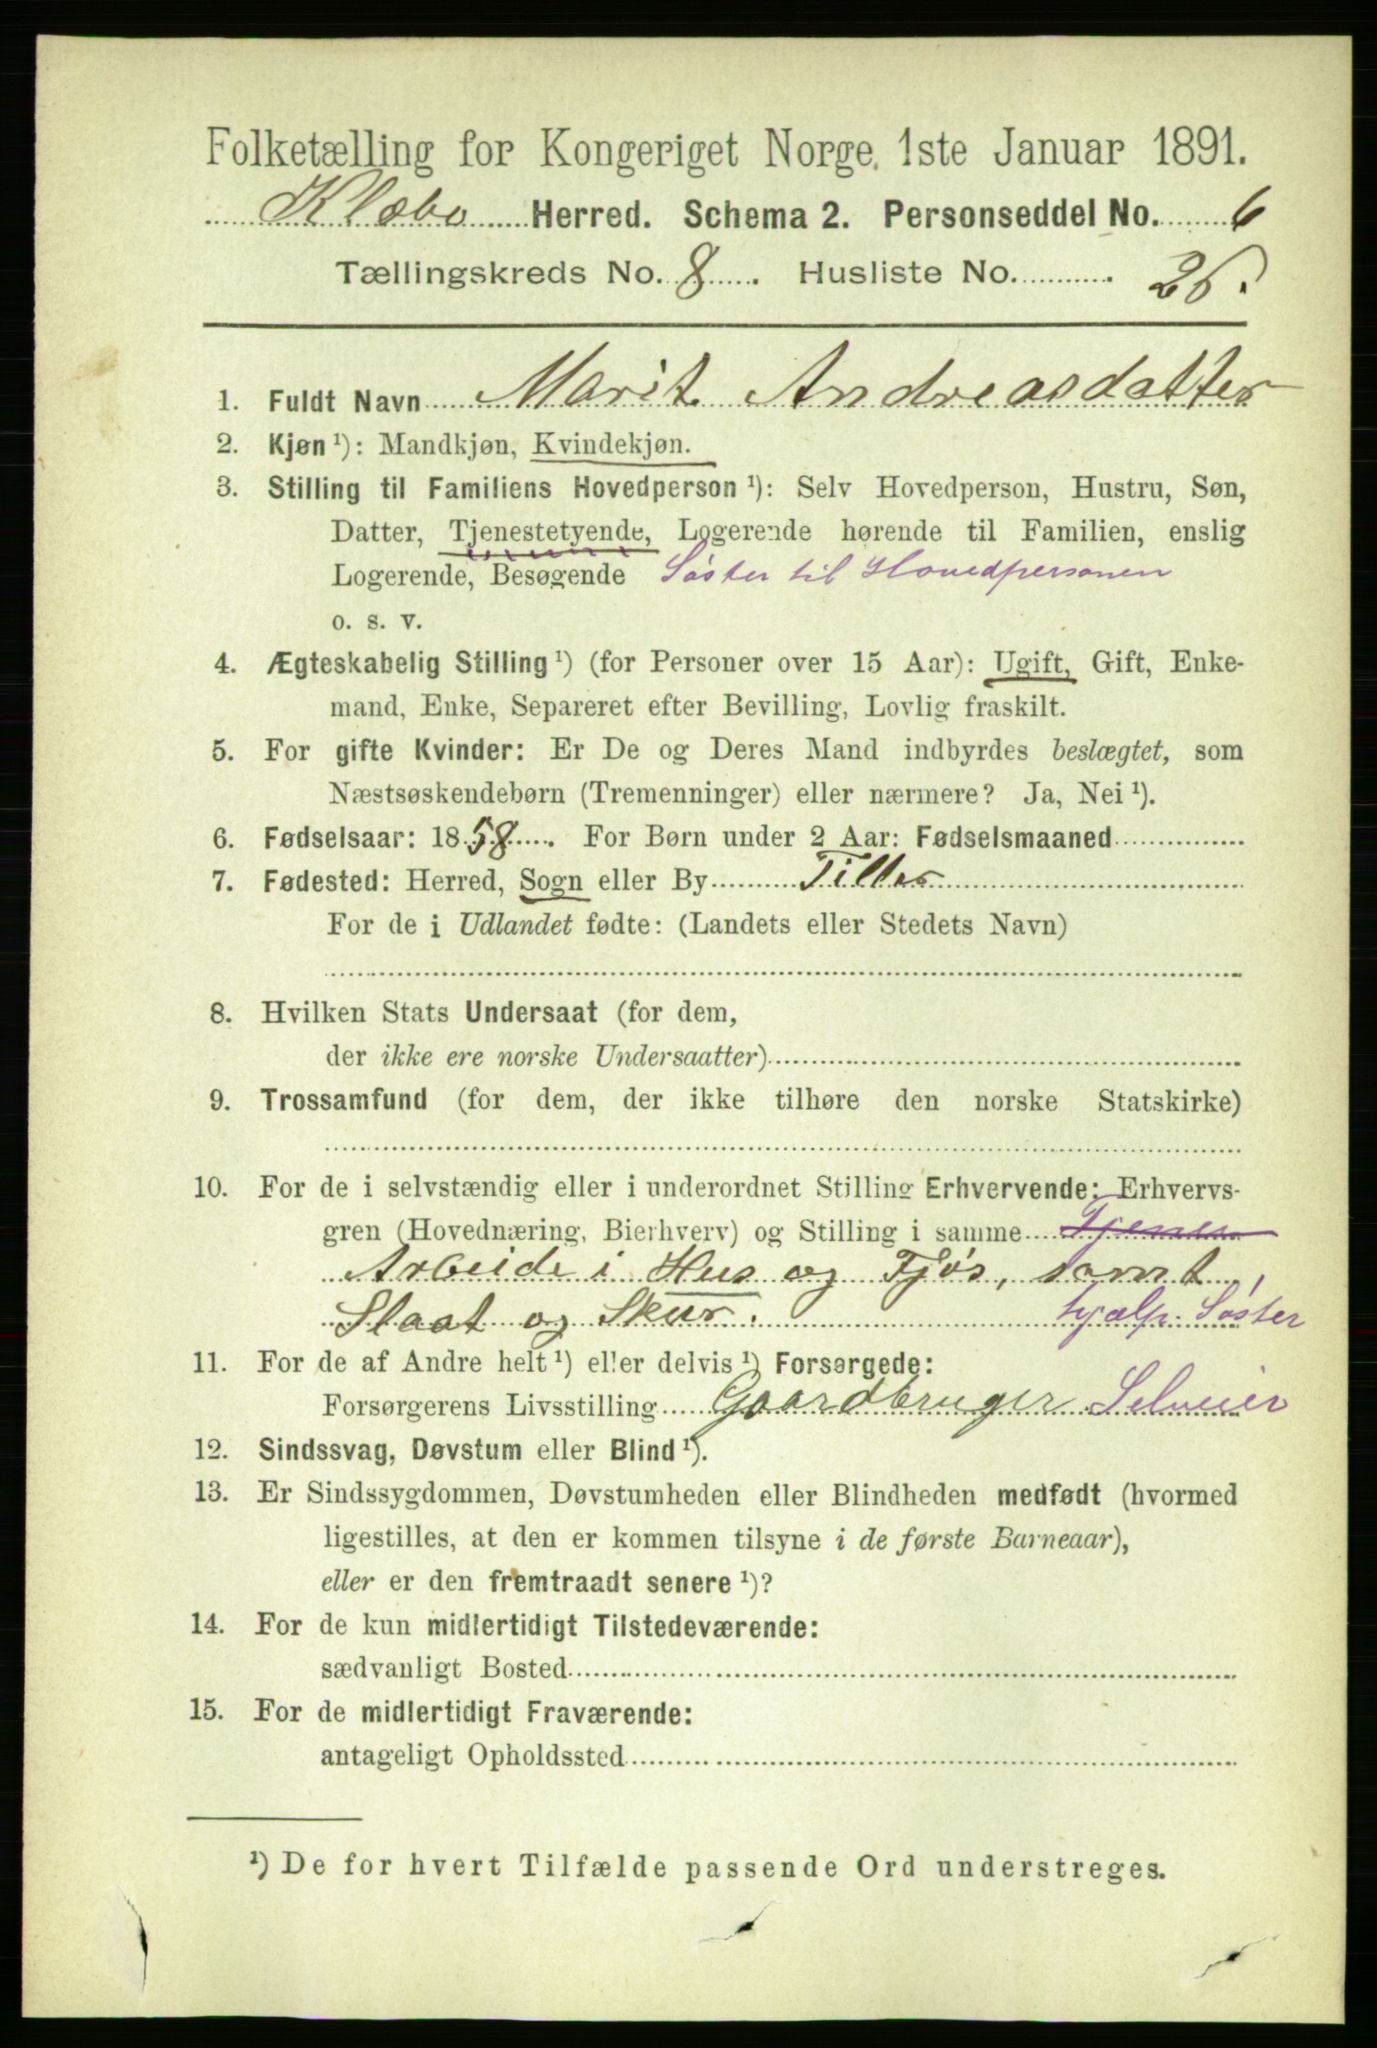 Folketælling for Kongeriget Norge, 1ste Januar 1891.
Klæbo Herred. Schema 2. Personseddel No. 6
Tællingskreds No. 8. Husliste No. 26.
1. Fuldt Navn Marit Andreasdatter
2. Kjøn ¹): Mandkjøn, Kvindekjøn.
3. Stilling til Familiens Hovedperson ¹): Selv Hovedperson, Hustru, Søn,
Datter, Tjenestetyende, Logerende hørende til Familien, enslig
Logerende, Besøgende Søster til Hovedpersonen
o. s. v.
4. Ægteskabelig Stilling ¹) (for Personer over 15 Aar): Ugift, Gift, Enke-
mand, Enke, Separeret efter Bevilling, Lovlig fraskilt.
5. For gifte Kvinder: Er De og Deres Mand indbyrdes beslægtet, som
Næstsøskendebørn (Tremenninger) eller nærmere? Ja, Nei ¹).
6. Fødselsaar: 1858. For Børn under 2 Aar: Fødselsmaaned
7. Fødested: Herred, Sogn eller By Tiller
For de i Udlandet fødte: (Landets eller Stedets Navn)
8. Hvilken Stats Undersaat (for dem,
der ikke ere norske Undersaatter)
9. Trossamfund (for dem, der ikke tilhøre den norske Statskirke)
10. For de i selvstændig eller i underordnet Stilling Erhvervende: Erhvervs-
gren (Hovednæring, Bierhverv) og Stilling i samme Tjener
Arbeide i Hus og Fjøs, samt
Slaat og Skur. hjælp. Søster
11. For de af Andre helt ¹) eller delvis ¹) Forsørgede:
Forsørgerens Livsstilling Gaardbruger Selveier
12. Sindssvag, Døvstum eller Blind ¹).
13. Er Sindssygdommen, Døvstumheden eller Blindheden medfødt (hvormed
ligestilles, at den er kommen tilsyne i de første Barneaar),
eller er den fremtraadt senere ¹)?
14. For de kun midlertidigt Tilstedeværende:
sædvanligt Bosted
15. For de midlertidigt Fraværende:
antageligt Opholdssted
¹) De for hvert Tilfælde passende Ord understreges.